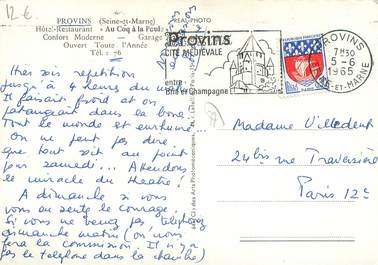 12 €
PROVINS (Seine-et-Marne)
Hôtel-Restaurant « Au Coq à la Poule »
Confort Moderne — Garage
Ouvert Toute l'Année
Tél. : 76
REAL-PHOTO
Provins
CITÉ MÉDIÉVALE
entre
Brie et Champagne
PROVINS
7H30
5-6
1965
SEINE-ET-MARNE
Hier soir répétition
jusqu'à 4 heures du matin
Il faisait froid et on
pataugeait dans la boue.
Tout le monde est enrhumé
on ne peut pas dire
que tout soit au point
pour samedi... Attendons
le miracle du théâtre !
A dimanche si vous
vous en sentez le courage.
Si vous ne venez pas, téléphonez
dimanche matin (on nous
fera la commission. Il n'y a
pas le téléphone dans la chambre)
Madame Villedent
24 bis rue Traversière
Paris 12e